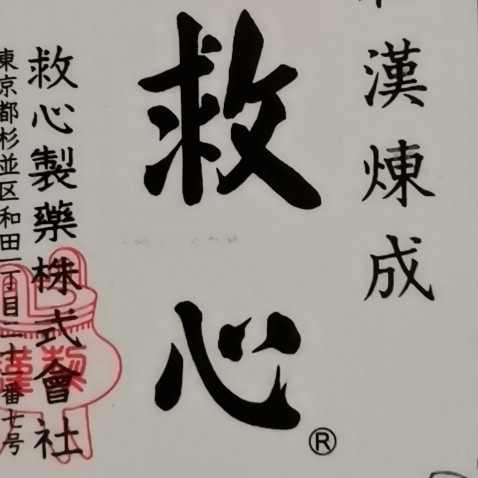 漢煉成
救心®
救心製薬株式會社
東京都杉並区和田一丁目二十一番七号